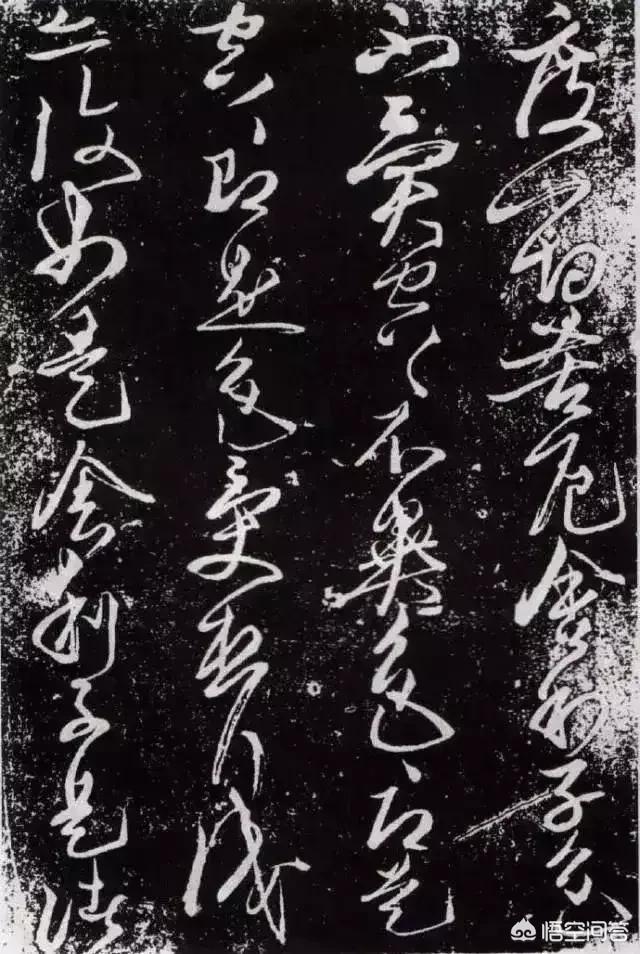 度一切苦厄舍利子色
不異空〻不異色〻即是
空〻即是色受想行識
亦復如是舍利子是諸
悟空问答